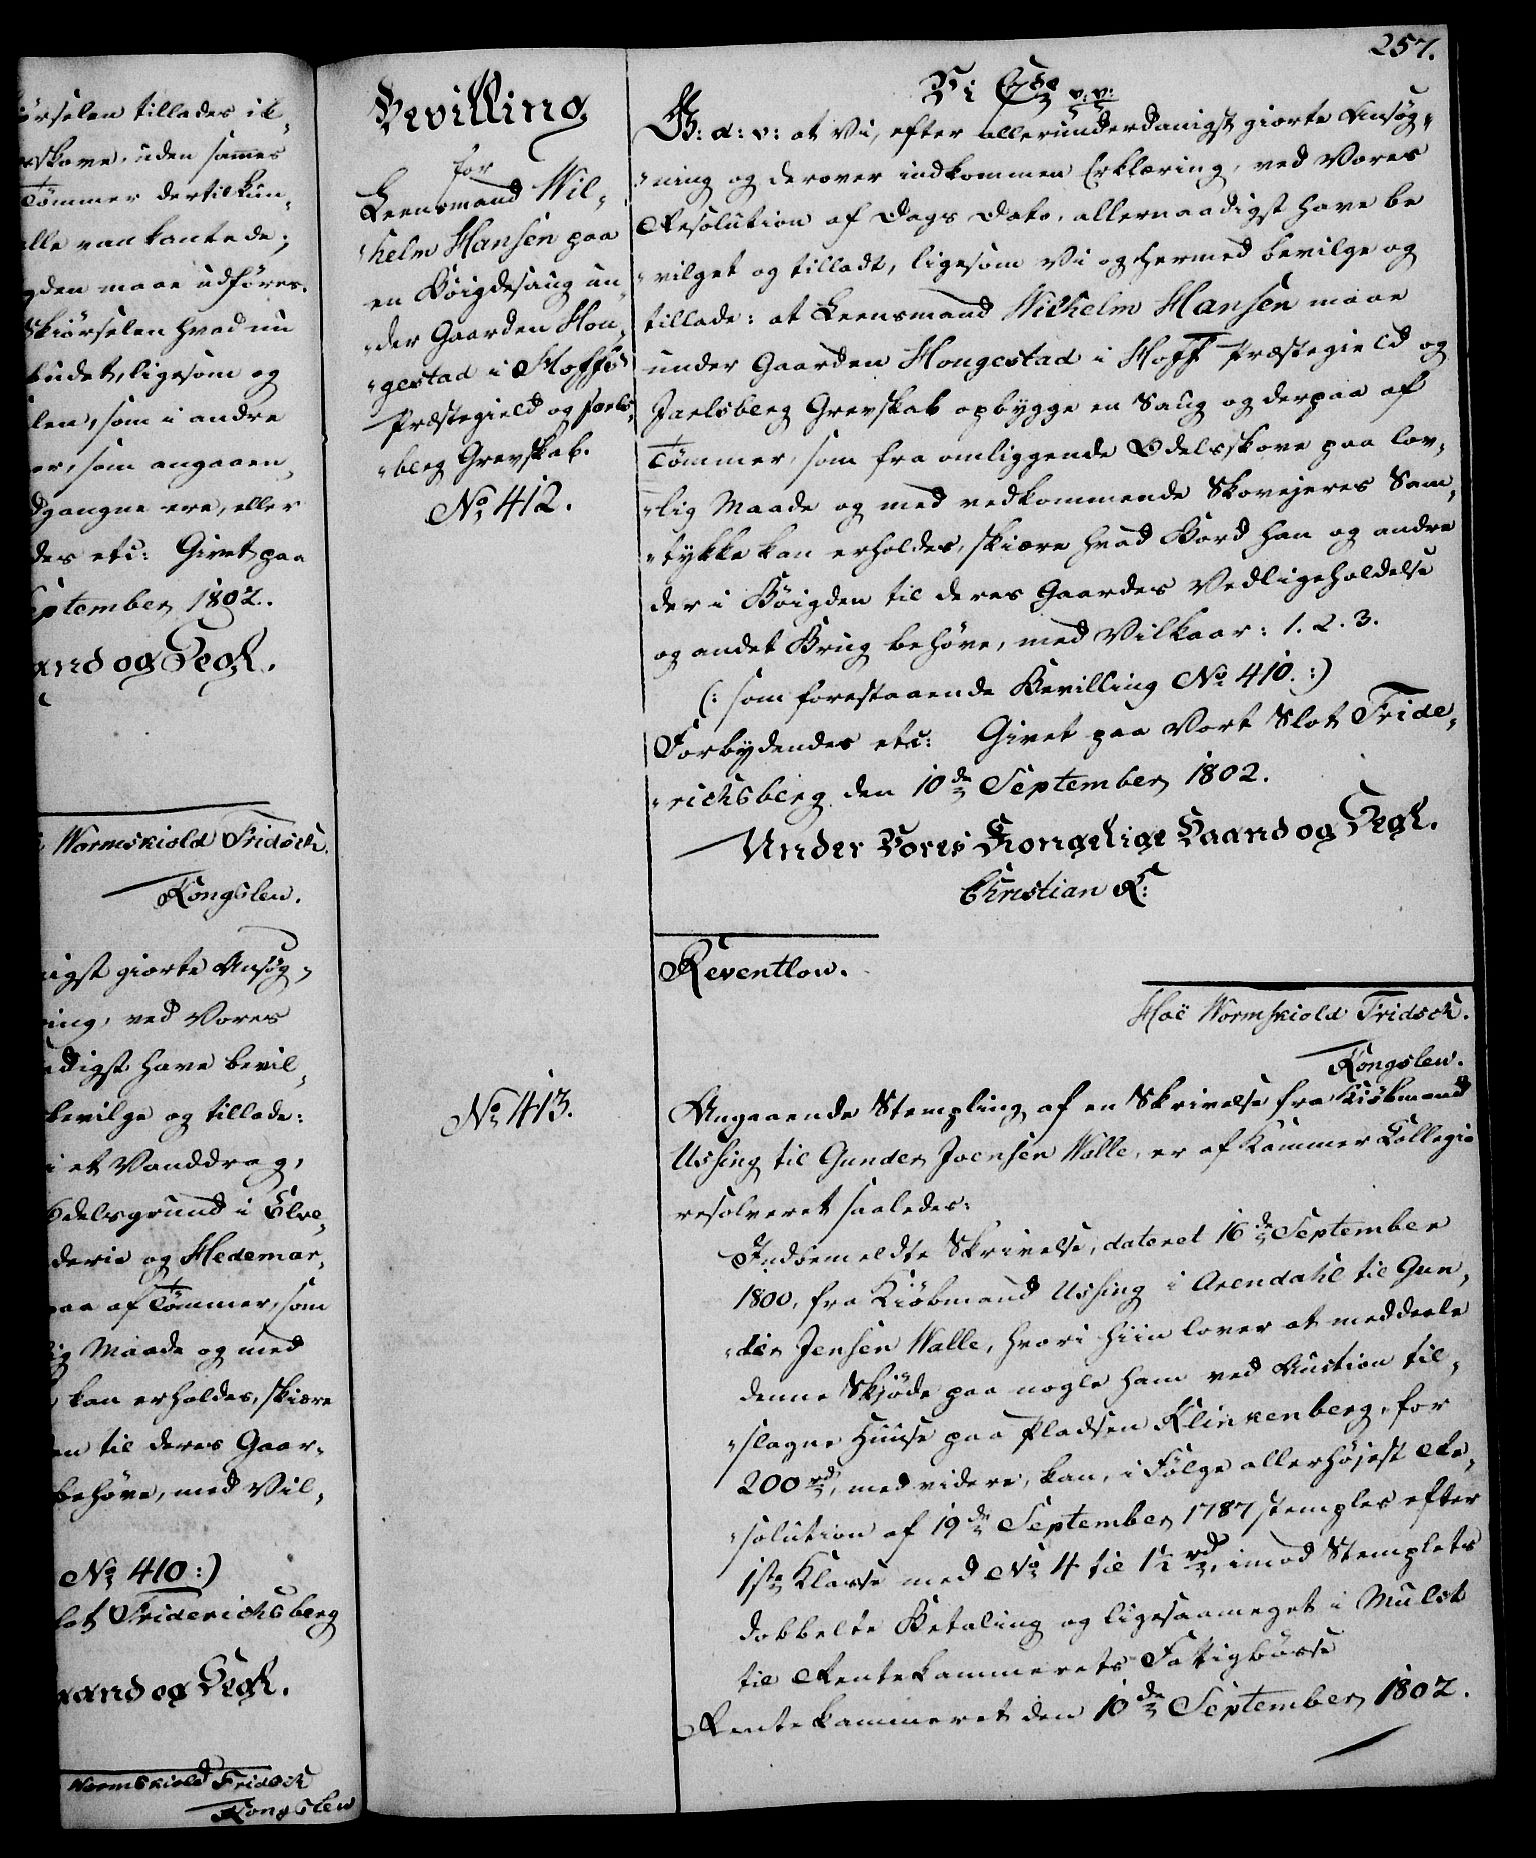 ørselen tillades ik-
skove, uden samme
Tømmer dertil kun-
alle vankantede;
gden maae udføres.
Skiørselen hvad nu
budet, ligesom og
len, som i andre
er, som angaaen-
dgangne ere, eller
des etc: Givet paa
September 1802.
aand og Segl.
Wormskiold Fridsch.
Kongslew.
nigst giorte Ansøg-
ring, ved Vores
adigst have bevil-
bevilge og tillade:
i et Vanddrag,
Odelsgrund i Elve-
derie og Hedemar-
paa af Tømmer, som
lig Maade og med
kan erholdes, skiære
den til deres Gaar-
behøve, med Vil-
No 410:)
lot Friderichsberg
aand og Segl.
Wormskiold Fridsch
Kongslew
Bevilling
for
Leensmand Wil-
helm Hansen paa
en Bøigdesaug un-
der Gaarden Hou-
gestad i Hoffs
Præstegield og Jarls-
berg Grevskab.
No 412.
257.
Vi C 7de v: v:
G: a: v: at Vi, efter allerunderdanigst giorte Ansøg-
ning og derover indkommen Erklæring, ved Vores
Resolution af Dags Dato, allernaadigst have be
vilget og tilladt, ligesom Vi og hermed bevilge og
tillade: at Leensmand Wilhelm Hansen maae
under Gaarden Hougestad i Hoff Præstegield og
Jarlsberg Grevskab opbygge en Saug og derpaa af
Tømmer, som fra omliggende Odelsskove paa lov-
lig Maade og med vedkommende Skovejeres Sam-
tykke kan erholdes, skiære hvad Bord han og andre
der i Bøigden til deres Gaardes Vedligeholdelse
og andet Brug behøve, med Vilkaar: 1. 2. 3.
(: som forestaaende Bevilling No 410. :)
Forbydendes etc: Givet paa Vort Slot Fride-
richsberg den 10de September 1802.
Under Vores Kongelige Haand og Segl.
Christian R:
Reventlow.
Hoë Wormskiold Fridsch.
Kongslew.
No 413.
Angaaende Stempling af en Skrivelse fra Kiøbmand
Ussing til Gunder Joensen Walle, er af Kammer Collegio
resolveret saaledes:
Indbemeldte Skrivelse, dateret 16de September
1800, fra Kiøbmand Ussing i Arendahl til Gun-
der Jensen Walle, hvori hiin lover at meddeele
denne Skjøde paa nogle ham ved Auction til-
slagne Huuse paa Pladsen Klinkenberg, for
200 rd, med videre, kan, i Følge allerhøjest Re-
solution af 19de September 1787 stemples efter
1ste Klasse med No 4 til 1½ rd, imod Stemplets
dobbelte Betaling og ligesaameget i Mulct
til Rentekammerets Fattigbøsse
Rentekammeret den 10de September 1802.